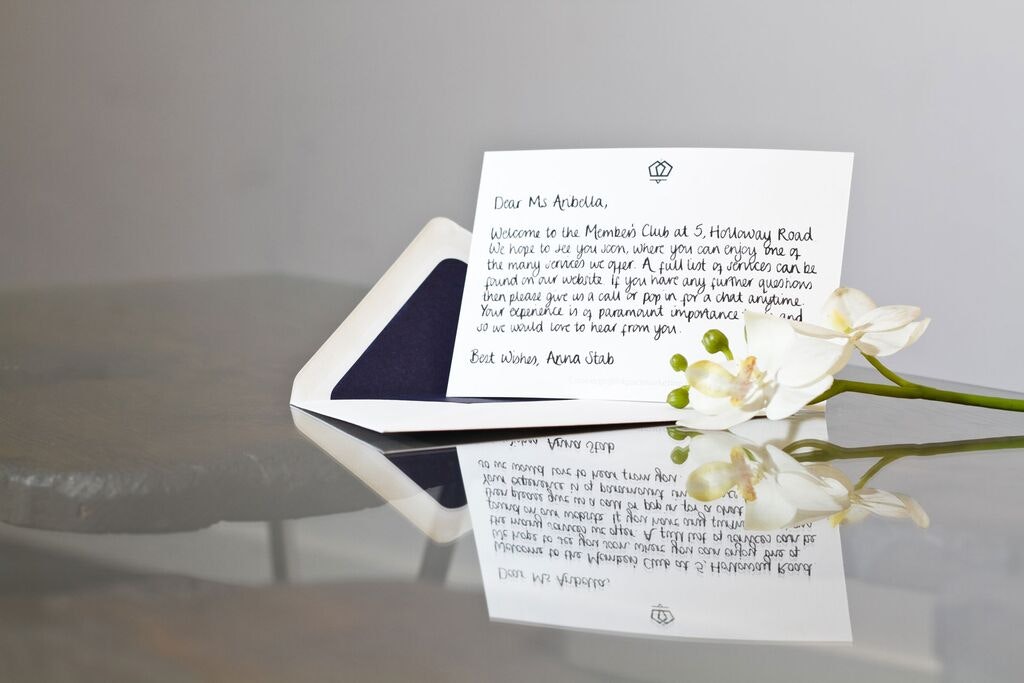 Dear Ms Aribella,
Welcome to the Member's Club at 5, Holloway Road
We hope to see you soon, where you can enjoy one of
the many services we offer. A full list of services can be
found on our website. If you have any further questions
then please give us a call or pop in for a chat anytime.
Your experience is of paramount importance and
so we would love to hear from you.
Best Wishes, Anna Stab